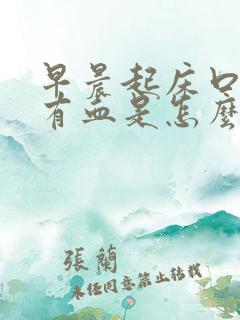 早晨起床口
有血是怎麼
張蘭
未经同意禁止转载